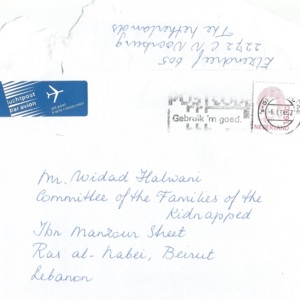 Elzendreef 605
2272 C N Voorburg
The Netherlands
luchtpost
par avion
POSTCODE
Gebruik 'm goed.
NEDERLAND
Mr. Widad Halwani
Committee of the Families of the
Kidnapped
Ibn Manzour Street
Ras al-Nabei, Beirut
Lebanon